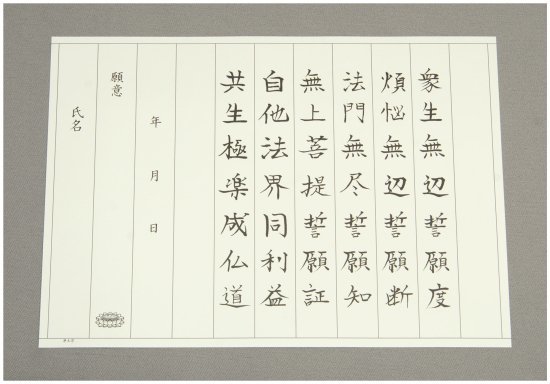 衆生無辺誓願度
煩悩無辺誓願断
法門無尽誓願知
無上菩提誓願証
自他法界同利益
共生極楽成仏道
年 月 日
願意
氏名